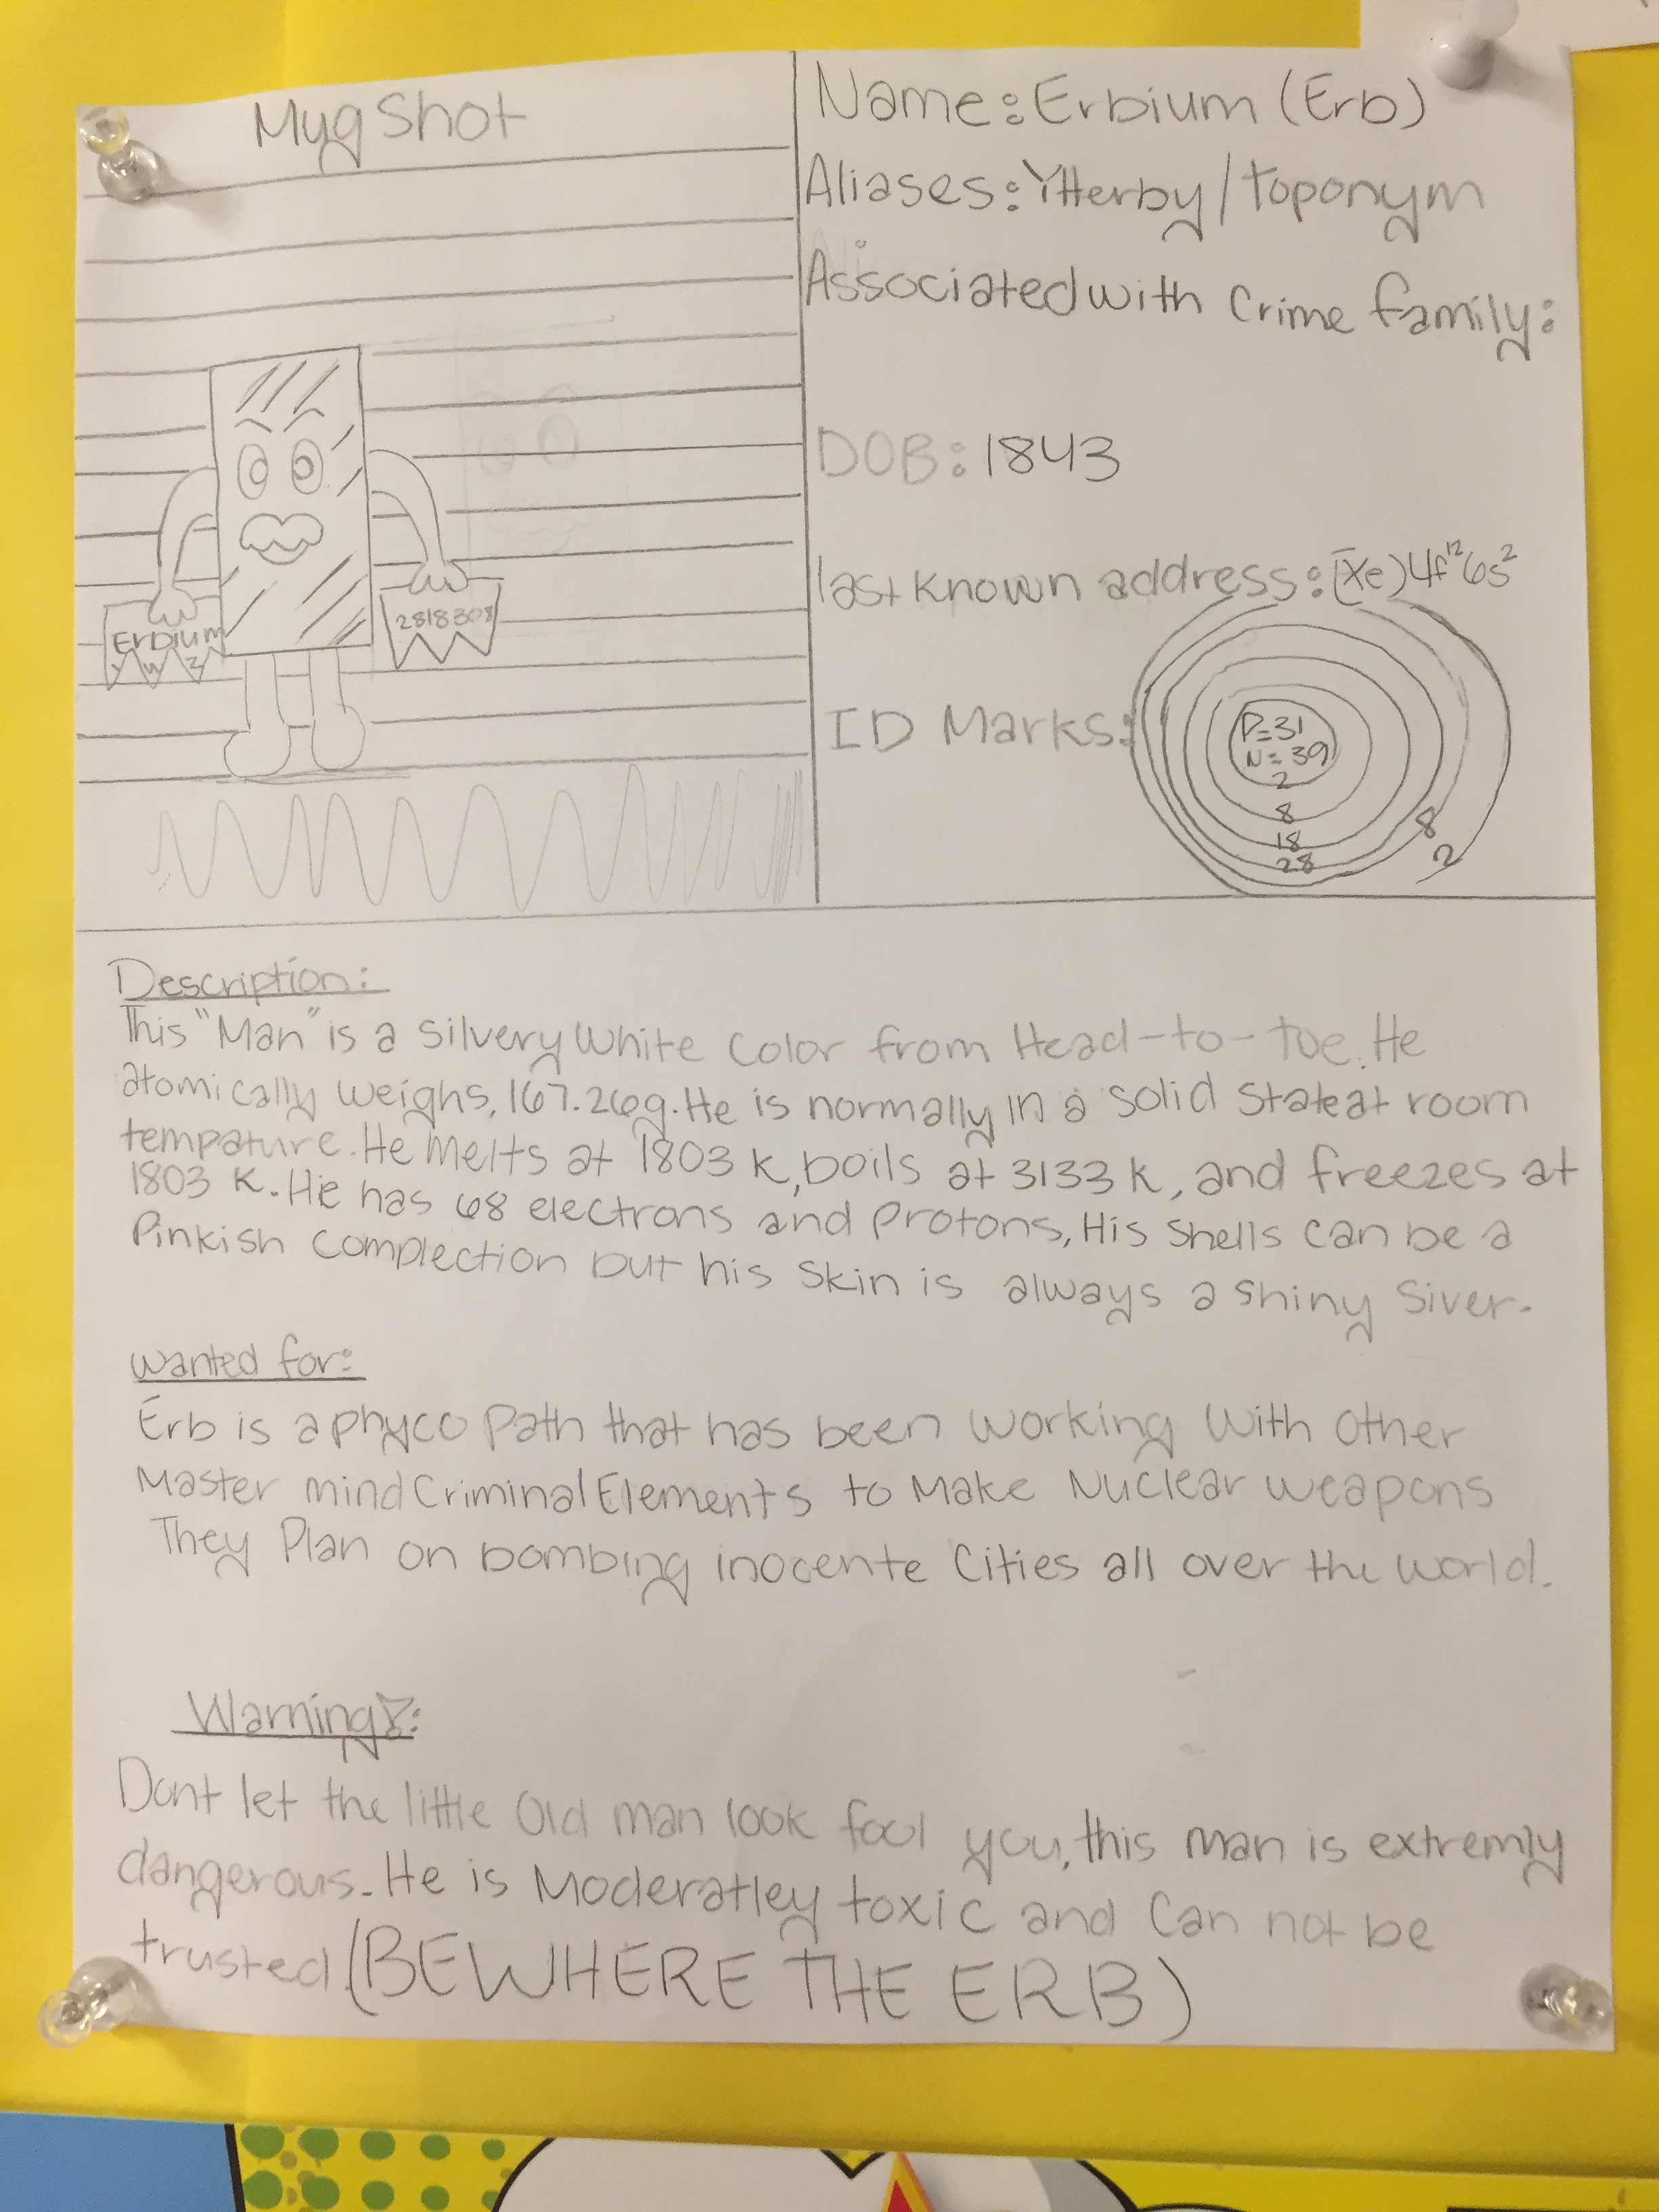 Mug Shot
Erbium
2818308
Name: Erbium (Erb)
Aliases: Ytterby/toponym
Associated with Crime family:
DOB: 1843
last known address: [Xe) 4f¹² 6s²
ID Marks:
P=31
N=39
2
8
18
28
8
2
Description:
This "Man" is a silvery white color from Head-to-toe. He
atomically weighs, 167.26g. He is normally in a solid state at room
tempature. He melts at 1803 k, boils at 3133 k, and freezes at
1803 k. He has 68 electrons and protons, His shells can be a
Pinkish complection but his skin is always a shiny siver.
wanted for:
Erb is a phyco path that has been working with other
Master mind Criminal Elements to make Nuclear weapons
They Plan on bombing inocente Cities all over the world.
Warning!:
Dont let the little old man look fool you, this man is extremly
dangerous. He is Moderatley toxic and can not be
trusted. (BEWHERE THE ERB)